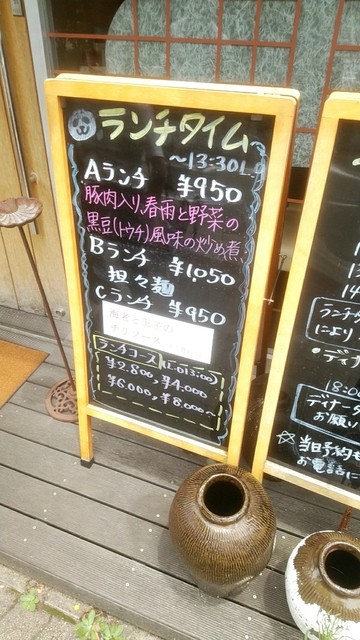 ランチタイム
〜13:30L.O
Aランチ ¥950
豚肉入り、春雨と野菜の
黒豆(トウチ)風味の炒め煮、
Bランチ ¥1,050
担々麺
Cランチ ¥950
海老と玉子の
チリソース
ランチコース (L.O13:00)
¥2,800、¥4,000
¥6,000、¥8,000〜
ランチタ
により
ディナ
18:0
ディナー
お願い
当日予約も
お電話に